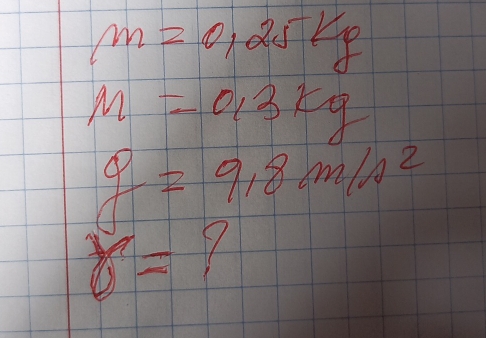 m = 0,25 Kg
M = 0,3 Kg
g = 9,8 m/s²
γ = ?